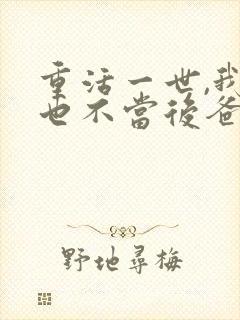 重活一世,我
也不當後爸
野地尋梅